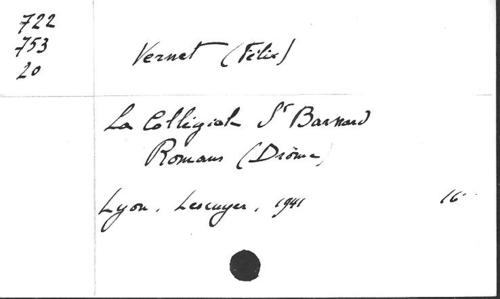 722
753
20
Vernet (Félix)
La Collégiale St Barnard
Romans (Drôme)
Lyon, Lescuyer, 1941 16°